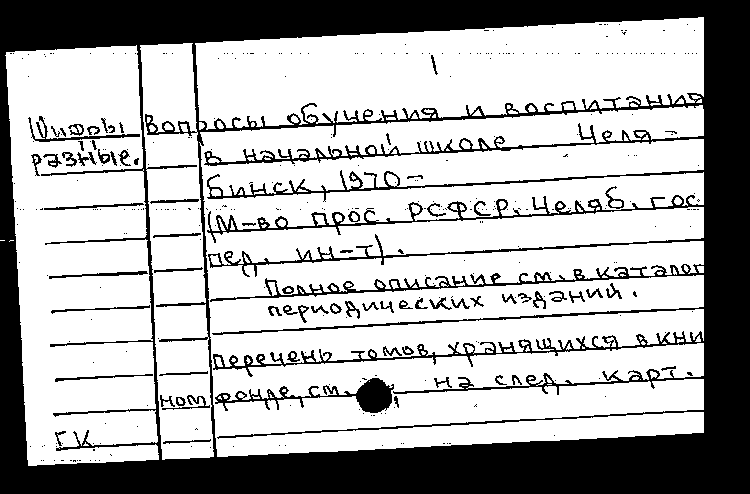 1
Шифры Вопросы обучения и воспитания
разные. в начальной школе. Челя-
бинск, 1970-
(М-во прос. РСФСР. Челяб. гос
пед. ин-т).
Полное описание см. в каталог
периодических изданий.
Перечень томов, хранящихся в кни
ном фонде, см. на след. карт.
ГК